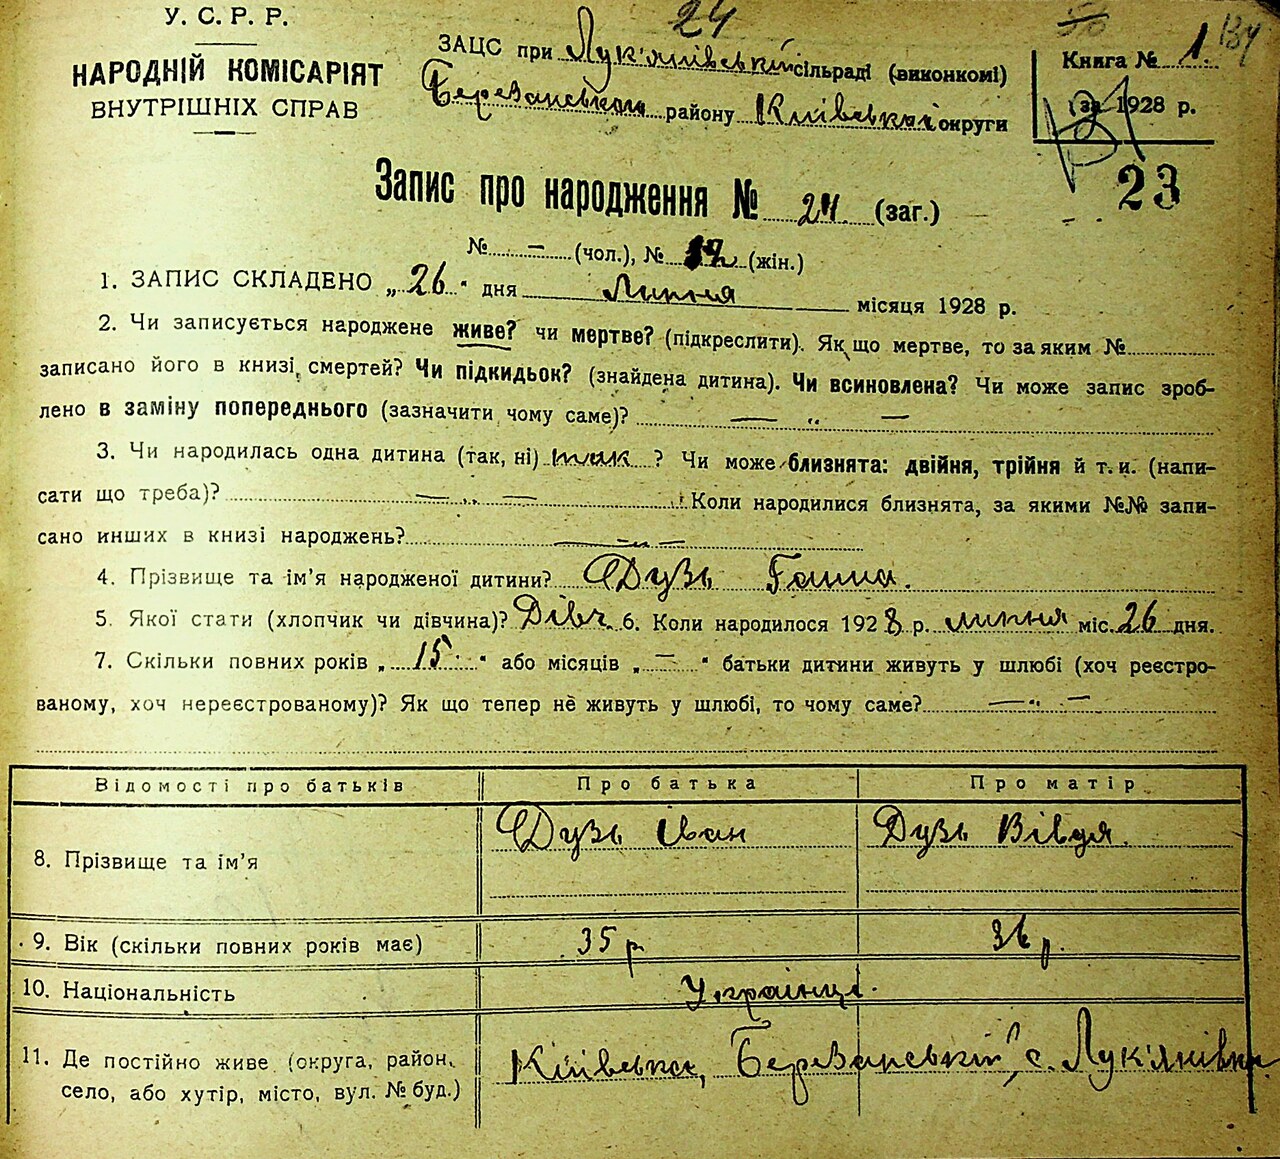 24
У. С. Р. Р.
НАРОДНІЙ КОМІСАРІЯТ
ВНУТРІШНІХ СПРАВ
ЗАЦС при Лук'янівській сільраді (виконкомі)
Березанського району Київської округи
Книга № 1. 134
за 1928 р.
23
Запис про народження № 24 (заг.)
№ — (чол.), № 12 (жін.)
1. ЗАПИС СКЛАДЕНО „26" дня Липня місяця 1928 р.
2. Чи записується народжене живе? чи мертве? (підкреслити). Як що мертве, то за яким №
записано його в книзі смертей? Чи підкидьок? (знайдена дитина). Чи всиновлена? Чи може запис зроб-
лено в заміну попереднього (зазначити чому саме)? — „ —
3. Чи народилась одна дитина (так, ні) так ? Чи може близнята: двійня, трійня й т. и. (напи-
сати що треба)? — „ — Коли народилися близнята, за якими №№ запи-
сано инших в книзі народжень? — „ —
4. Прізвище та ім'я народженої дитини? Дузь Ганна.
5. Якої стати (хлопчик чи дівчина)? Дівч. 6. Коли народилося 1928 р. липня міс. 26 дня.
7. Скільки повних років „15" або місяців „—" батьки дитини живуть у шлюбі (хоч реєстро-
ваному, хоч нереєстрованому)? Як що тепер не живуть у шлюбі, то чому саме? — „ —
Відомості про батьків Про батька Про матір
8. Прізвище та ім'я Дузь Іван Дузь Вівдя.
9. Вік (скільки повних років має) 35 р. 36 р.
10. Національність Українці.
11. Де постійно живе (округа, район, село, або хутір, місто, вул. № буд.) Київська, Березанський, с. Лук'янівка